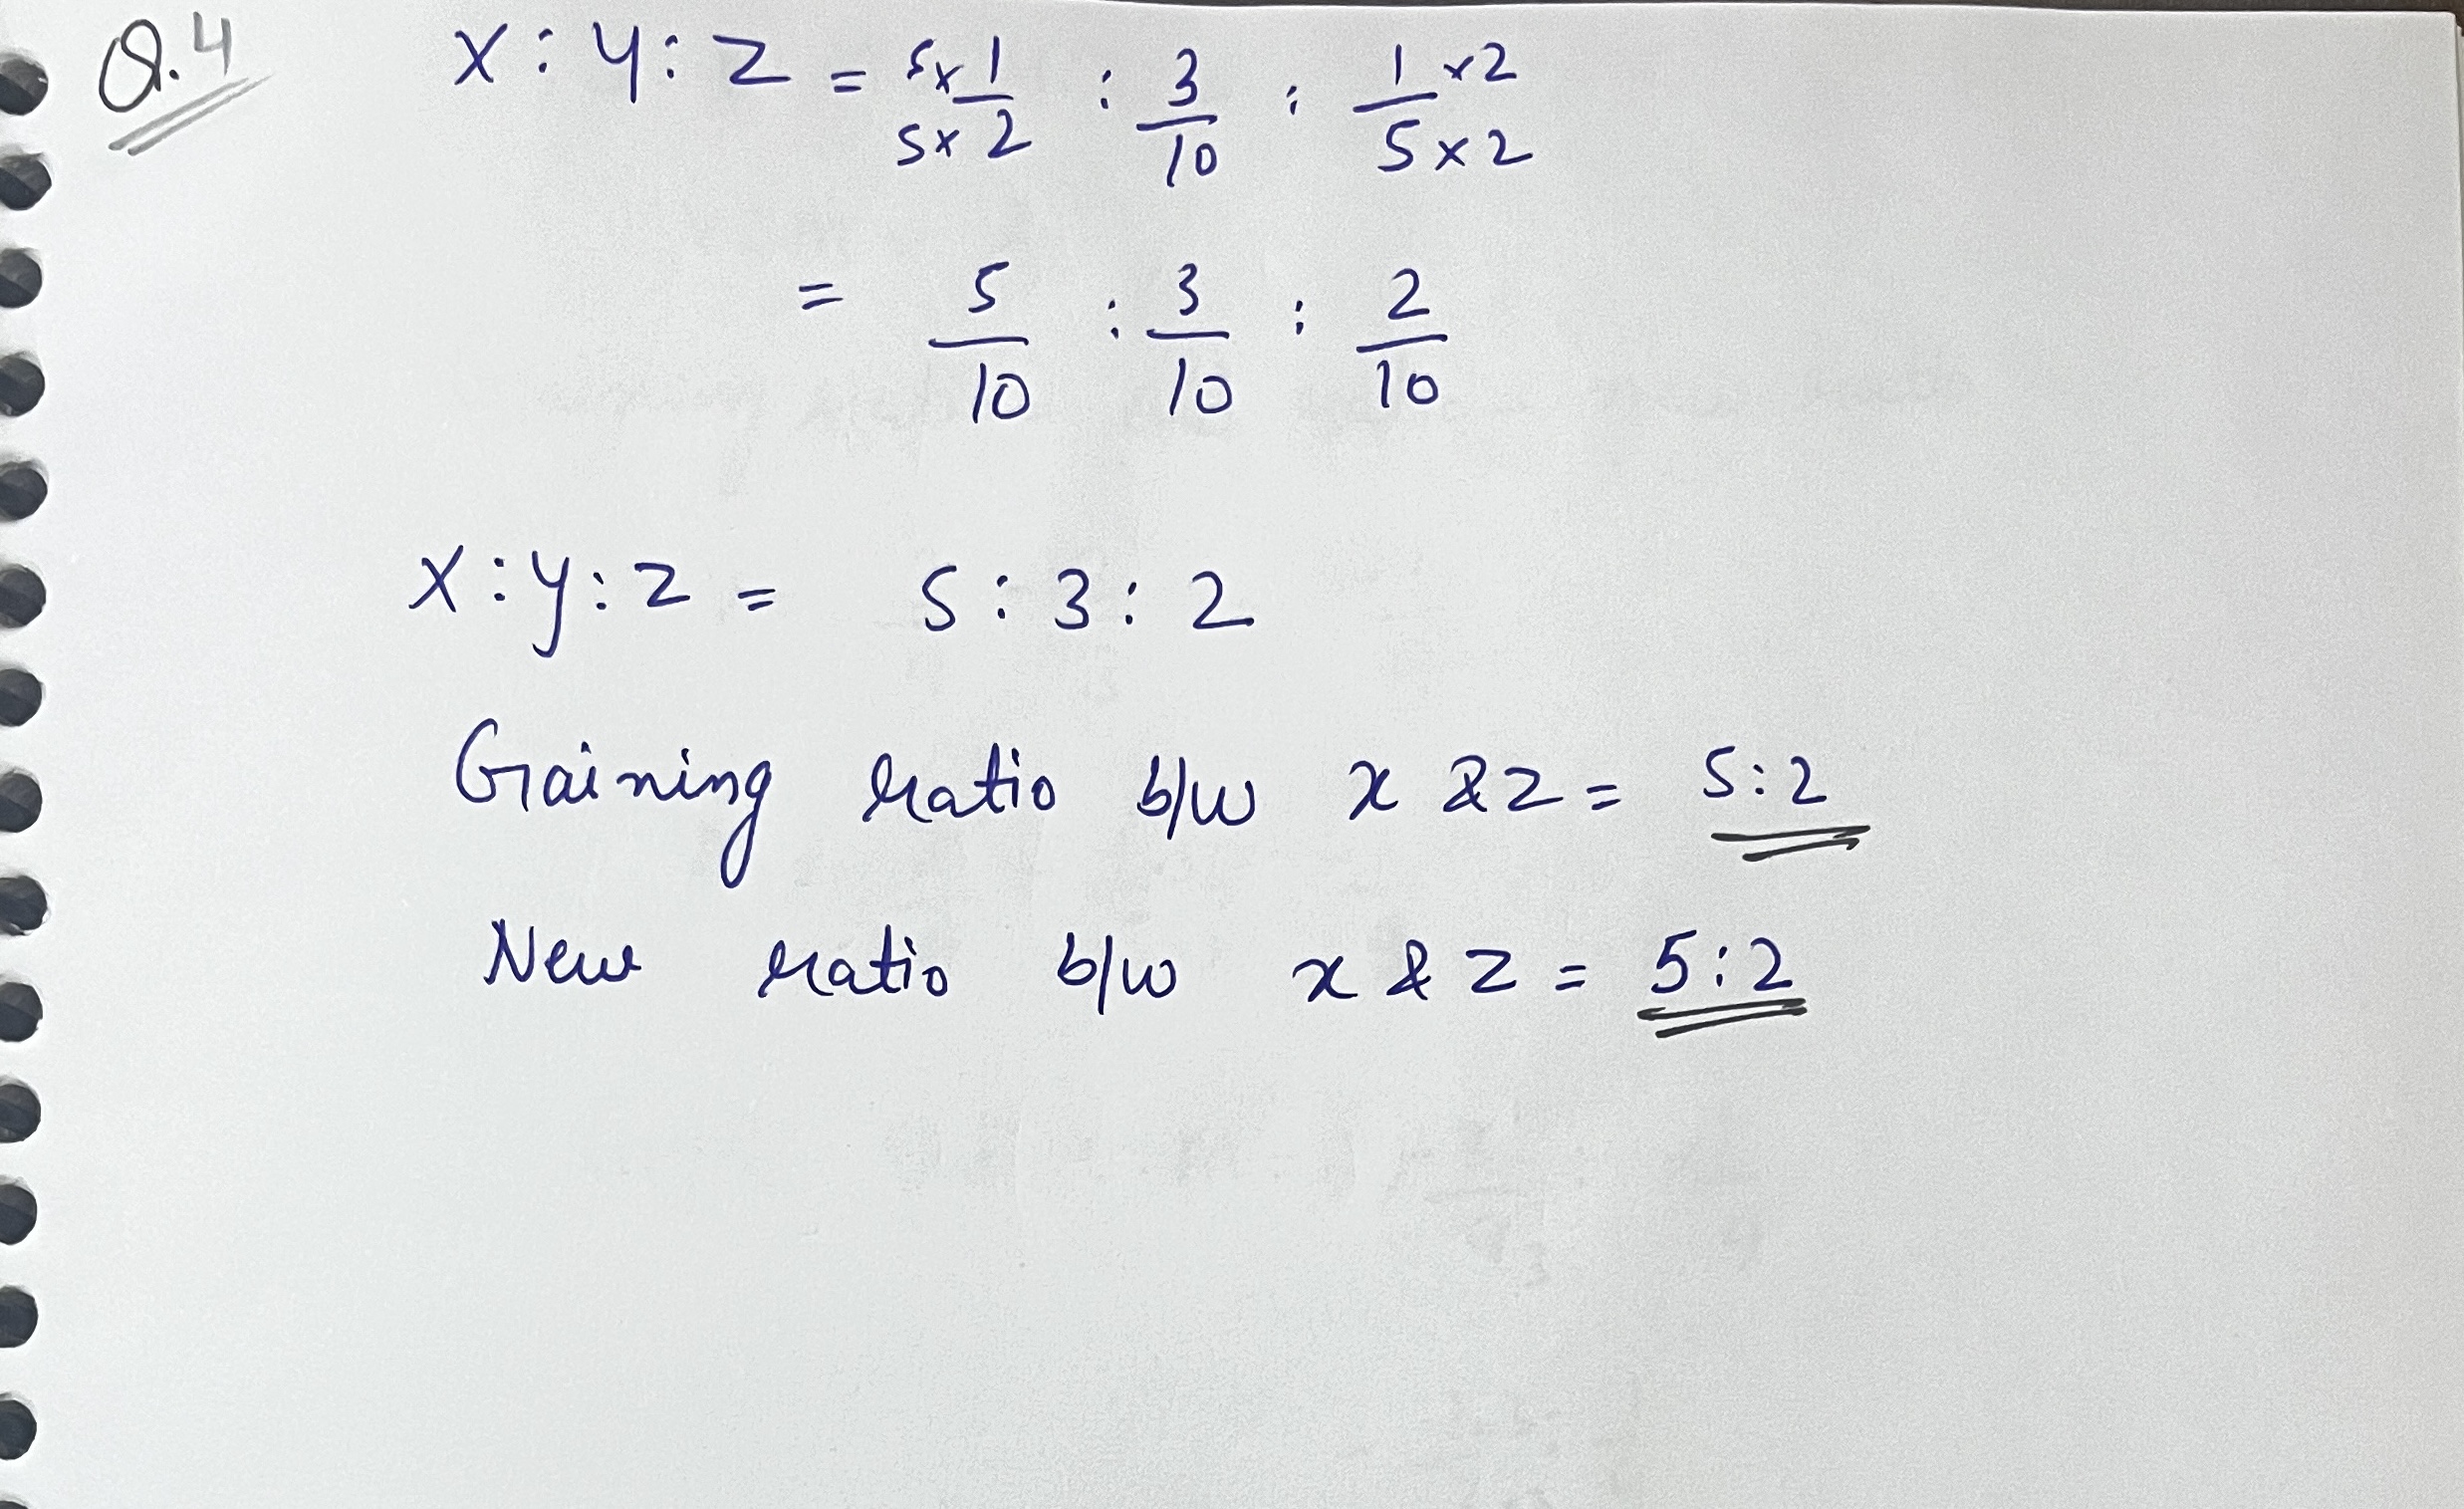 Q.4 X : Y : Z = 5x1/5x2 : 3/10 : 1x2/5x2
= 5/10 : 3/10 : 2/10
X : y : Z = 5 : 3 : 2
Gaining ratio b/w x & z = 5:2
New ratio b/w x & z = 5:2